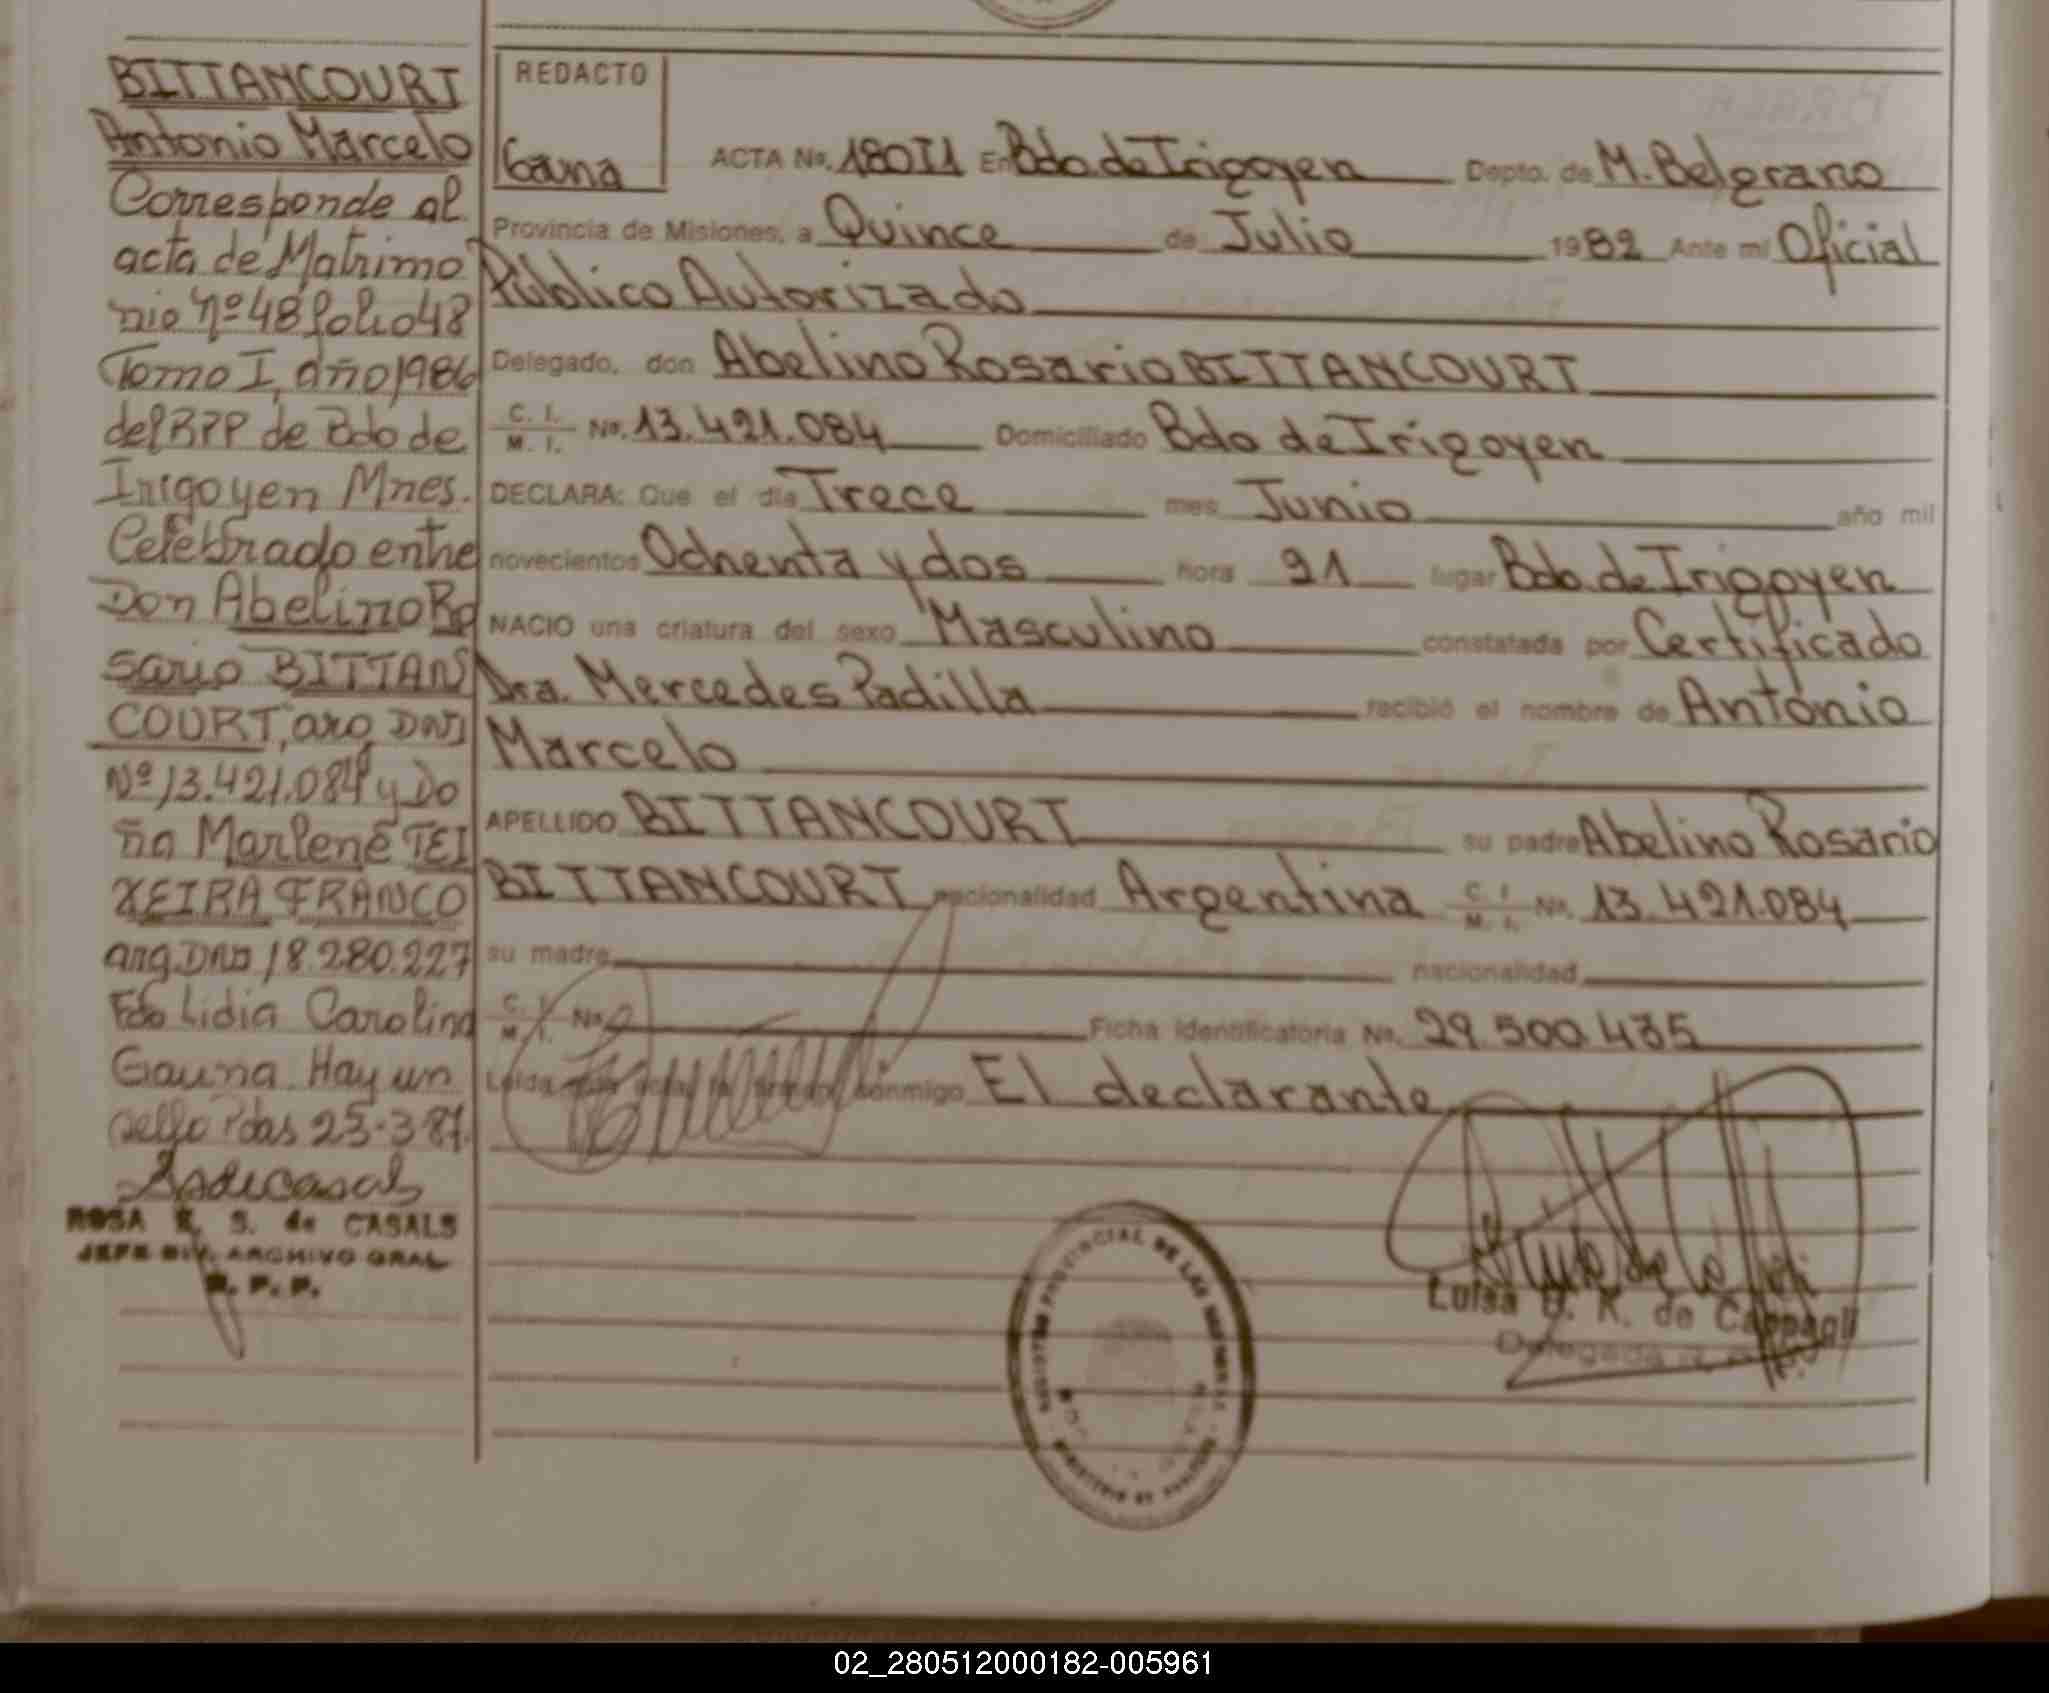 BITTANCOURT
Antonio Marcelo
Corresponde al
acta de Matrimo
nio Nº 48 folio 48
Tomo I, año 1986
del RPP de Bdo de
Irigoyen Mnes.
Celebrado entre
Don Abelino Ro
sario BITTAN
COURT, arg DNI
Nº 13.421.084 y Do
ña Marlene TEI
XEIRA FRANCO
arg. DNI 18.280.227
Fdo Lidia Carolina
Gauna. Hay un
sello Pdas 25-3-87.
ROSA E. S. de CASALS
JEFE DIV. ARCHIVO GRAL
R. P. P.
REDACTO
Gana
ACTA No. 180I1 En Bdo. de Irigoyen Depto. de M. Belgrano
Provincia de Misiones, a Quince de Julio 1982 Ante mi Oficial
Público Autorizado
Delegado, don Abelino Rosario BITTANCOURT
C. I. M. I. No. 13.421.084 Domiciliado Bdo de Irigoyen
DECLARA: Que el día Trece mes Junio año mil
novecientos Ochenta y dos hora 21 lugar Bdo. de Irigoyen
NACIO una criatura del sexo Masculino constatada por Certificado
Dra. Mercedes Padilla recibió el nombre de Antonio
Marcelo
APELLIDO BITTANCOURT su padre Abelino Rosario
BITTANCOURT nacionalidad Argentina C. I. M. I. No. 13.421.084
su madre nacionalidad
C. I. M. I. No. Ficha identificatoria No. 29.500.435
Leida conmigo El declarante
REGISTRO PROVINCIAL DE LAS PERSONAS
MINISTERIO DE GOBIERNO
Luisa K. de Cappagli
Delegada
02_280512000182-005961